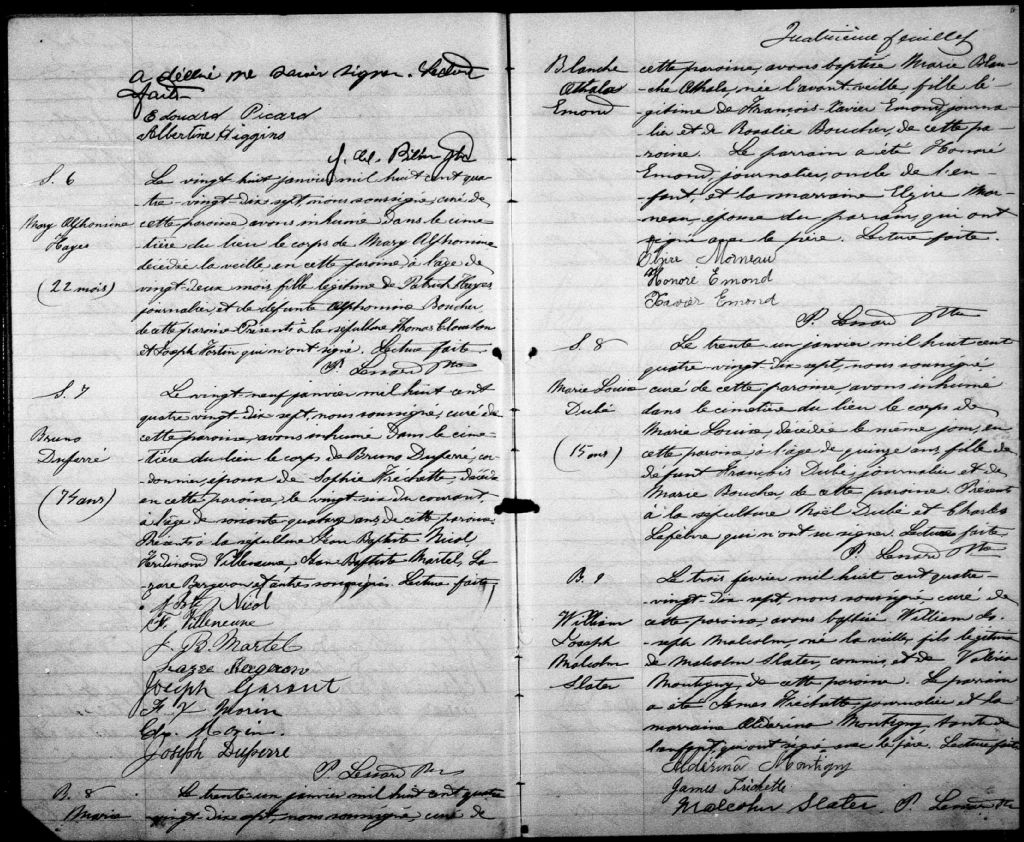 a déclaré ne savoir signer. Lecture
faite.
Edouard Picard
Albertine Higgins
J. Ptre
S. 6
Mary Alphonsine
Hayes
(22 mois)
Le vingt huit janvier mil huit cent qua-
tre-vingt-dix sept, nous soussigné, curé de
cette paroisse, avons inhumé dans le cime-
tière du lieu le corps de Mary Alphonsine
décédée la veille, en cette paroisse, à l'age de
vingt-deux mois, fille légitime de Patrick Hayes
journalier, et de défunte Alphonsine Boucher
de cette paroisse. Présents à la sépulture Thomas
et Joseph Fortin qui n'ont signé. Lecture faite.
P. Lessard Ptre
S. 7
Bruno
Duperré
(74 ans)
Le vingt-neuf janvier mil huit cent
quatre-vingt-dix sept, nous soussigné, curé de
cette paroisse, avons inhumé dans le cime-
tière du lieu le corps de Bruno Duperré, cor-
donnier, époux de Sophie Fréchette, décédé
en cette paroisse, le vingt-six du courant,
à l'âge de soixante quatorze ans, de cette paroisse.
Présents à la sépulture Jean Baptiste Nicol
Ferdinand Villeneuve, Jean Baptiste Martel, La-
zare Bergeron et autres soussignés. Lecture faite.
J. Bte Nicol
F. Villeneuve
J. B. Martel
Lazare Bergeron
Joseph Garant
F. X. Morin
Edm. Morin
Joseph Duperré
P. Lessard Ptre
B. 8
Marie
Le trente-un janvier mil huit cent quatre
vingt-dix sept, nous soussigné, curé de
Quatrième feuillet
Blanche
Othala
Emond
cette paroisse, avons baptisé Marie Blan-
che Othala, née l'avant-veille, fille lé-
gitime de François-Xavier Emond, journa-
lier et de Rosalie Boucher, de cette pa-
roisse. Le parrain a été Honoré
Emond, journalier, oncle de l'en-
fant, et la marraine Elzire Mor-
neau, épouse du parrain, qui ont
signé avec le père. Lecture faite.
Elzire Morneau
Honoré Emond
Xavier Emond
P. Lessard Ptre
S. 8
Marie Louise
Dubé
(15 ans)
Le trente-un janvier mil huit cent
quatre-vingt-dix sept, nous soussigné
curé de cette paroisse, avons inhumé
dans le cimetière du lieu le corps de
Marie Louise, décédée le même jour, en
cette paroisse à l'âge de quinze ans, fille de
défunt François Dubé, journalier et de
Marie Boucher, de cette paroisse. Présents
à la sépulture Noël Dubé et Charles
Lefebvre qui n'ont su signer. Lecture faite.
P. Lessard Ptre
B. 9
William
Joseph
Malcolm
Slater
Le trois février mil huit cent quatre-
vingt-dix sept, nous soussigné curé de
cette paroisse avons baptisé William Jo-
seph Malcolm, né la veille, fils légitime
de Malcolm Slater, commis, et de Valérie
Montigny, de cette paroisse. Le parrain
a été James Fréchette journalier et la
marraine Aldérina Montigny, tante de
l'enfant, qui ont signé avec le père. Lecture faite
Aldérina Montigny
James Fréchette
Malcolm Slater P. Lessard Ptre